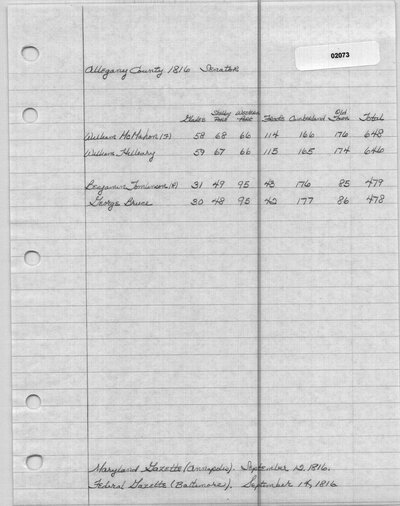 02073
Allegany County 1816 Senator
Selby Western Old
Glades Port Port Cumberland Town Total
William McMahon 58 68 66 114 166 176 648
William Hilleary 59 67 66 115 165 174 646
Benjamin Tomlinson 31 49 95 43 176 85 479
George Bruce 30 48 95 42 177 86 478
Maryland Gazette (Annapolis). September 12, 1816.
Federal Gazette (Baltimore). September 14, 1816